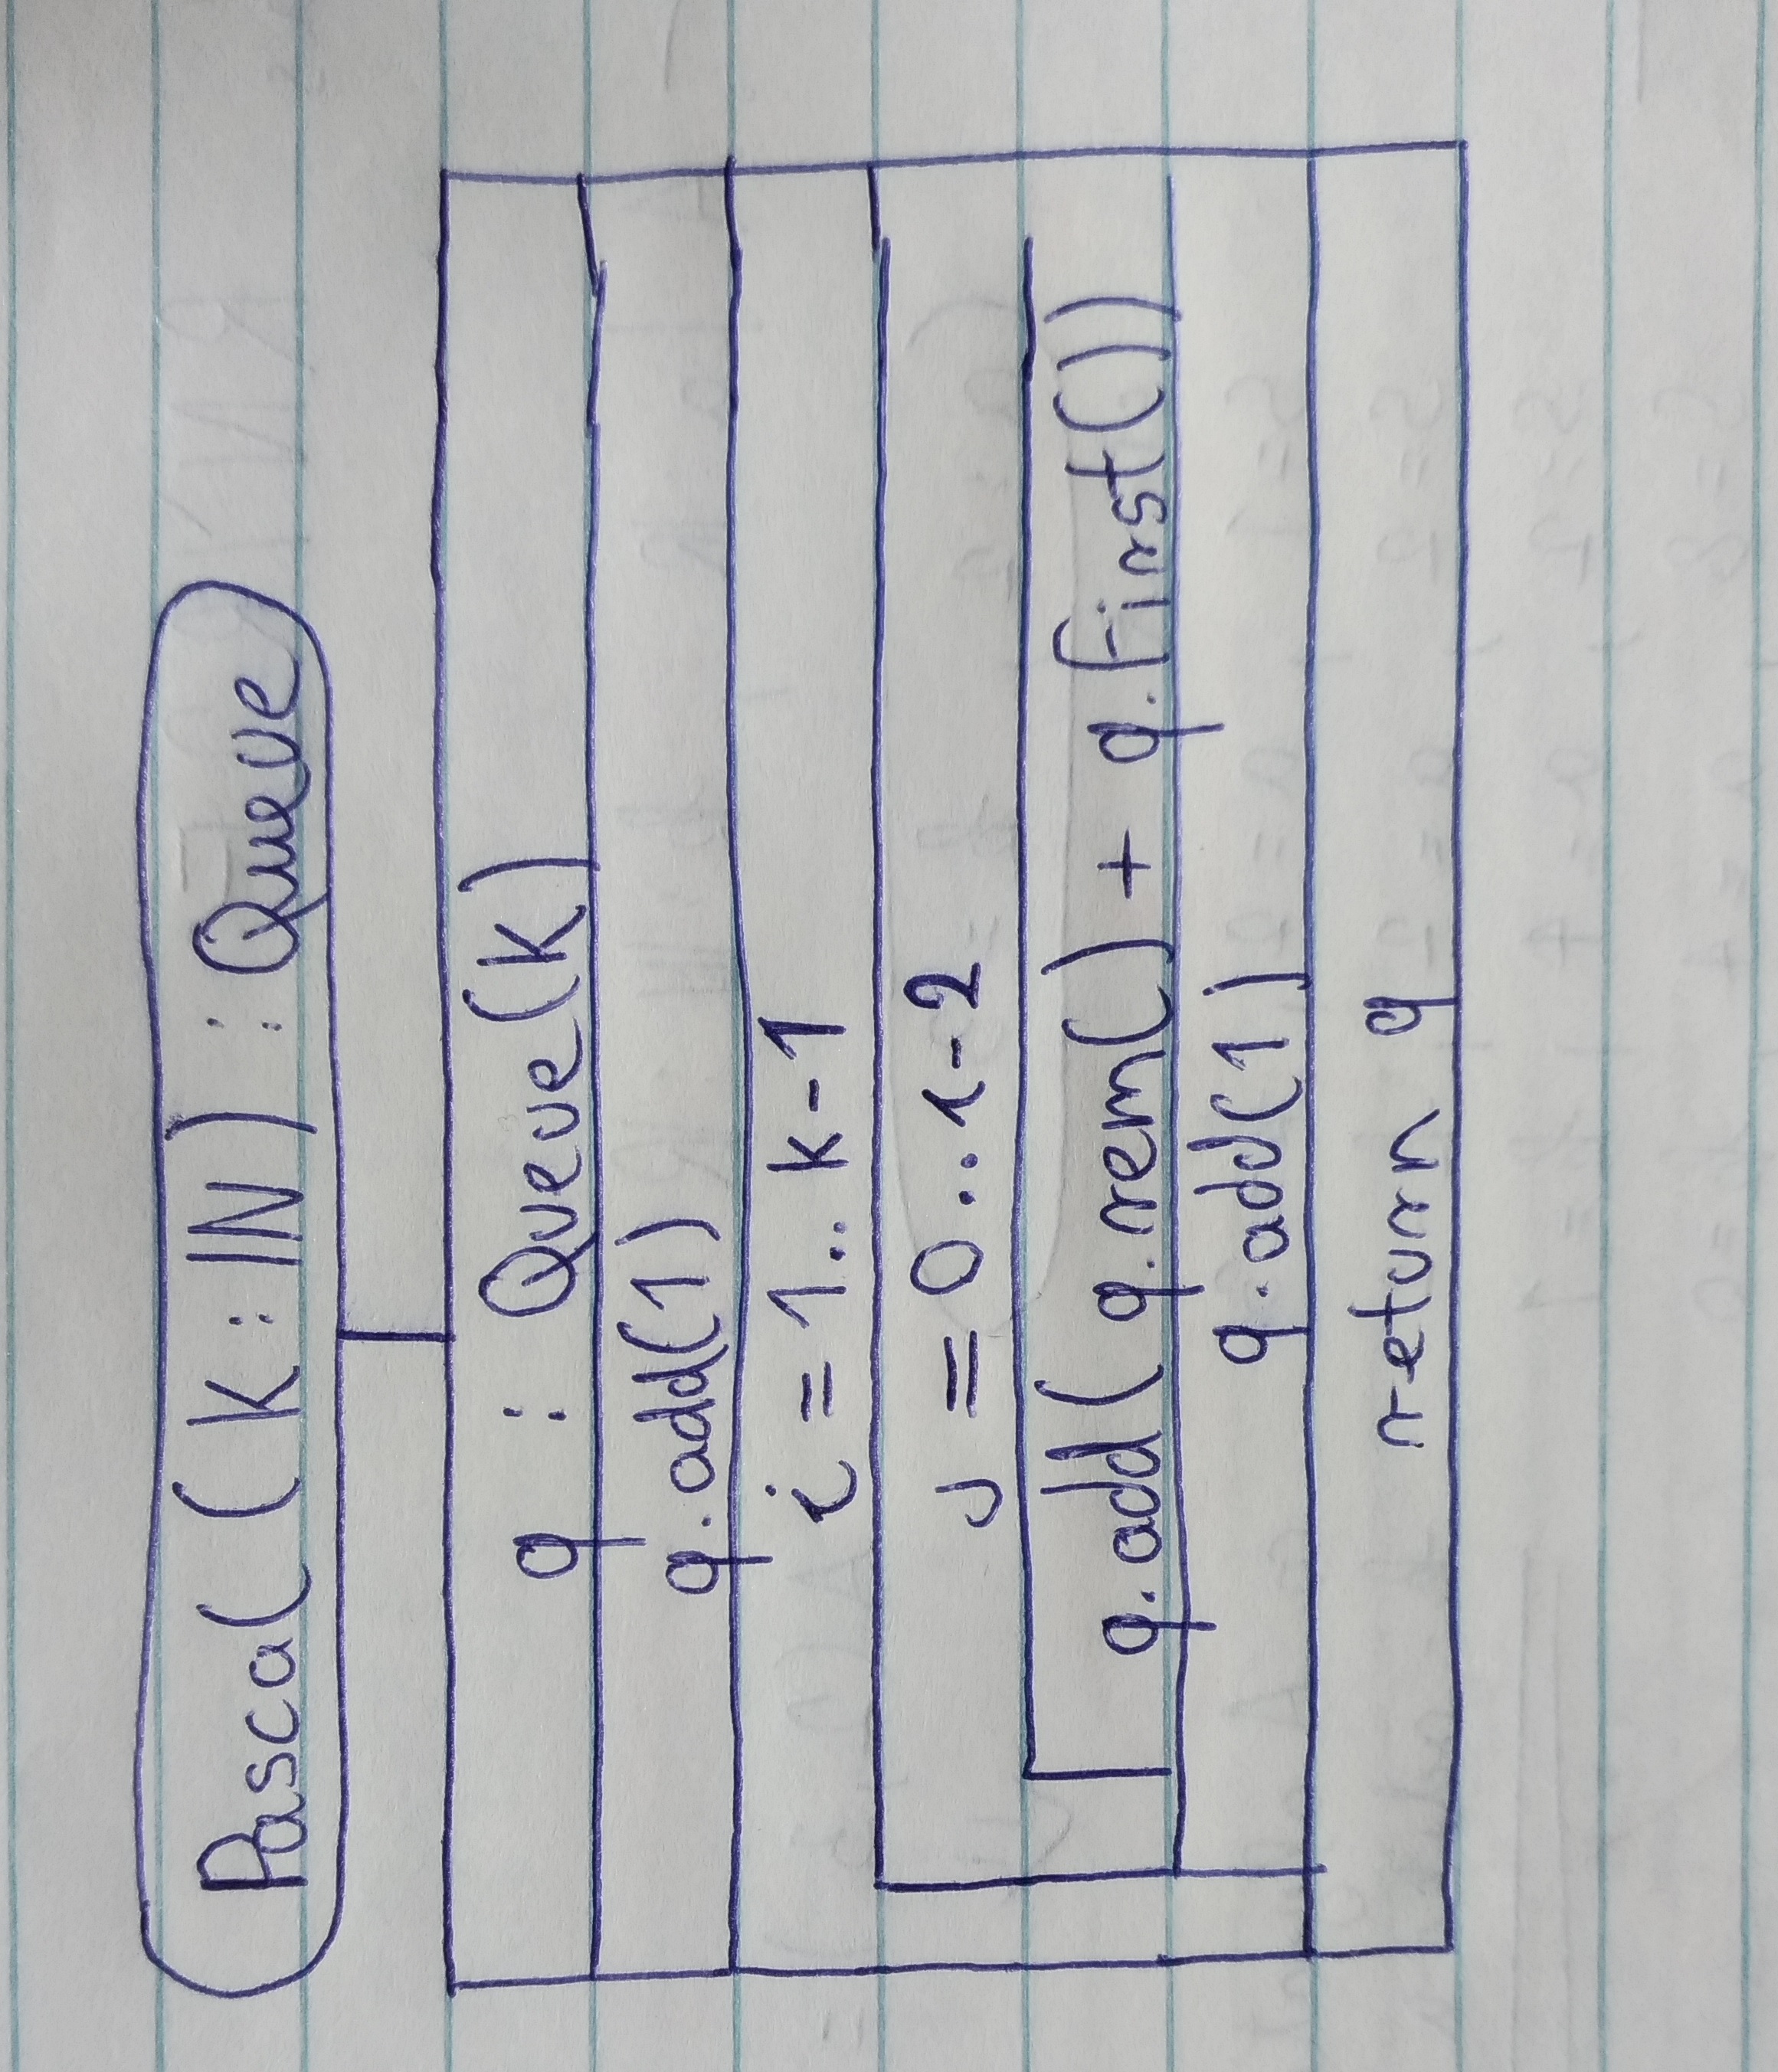 Pascal (K : ℕ) : Queue
q : Queue(K)
q.add(1)
i = 1..k-1
j = 0..i-2
q.add(q.rem() + q.first())
q.add(1)
return q